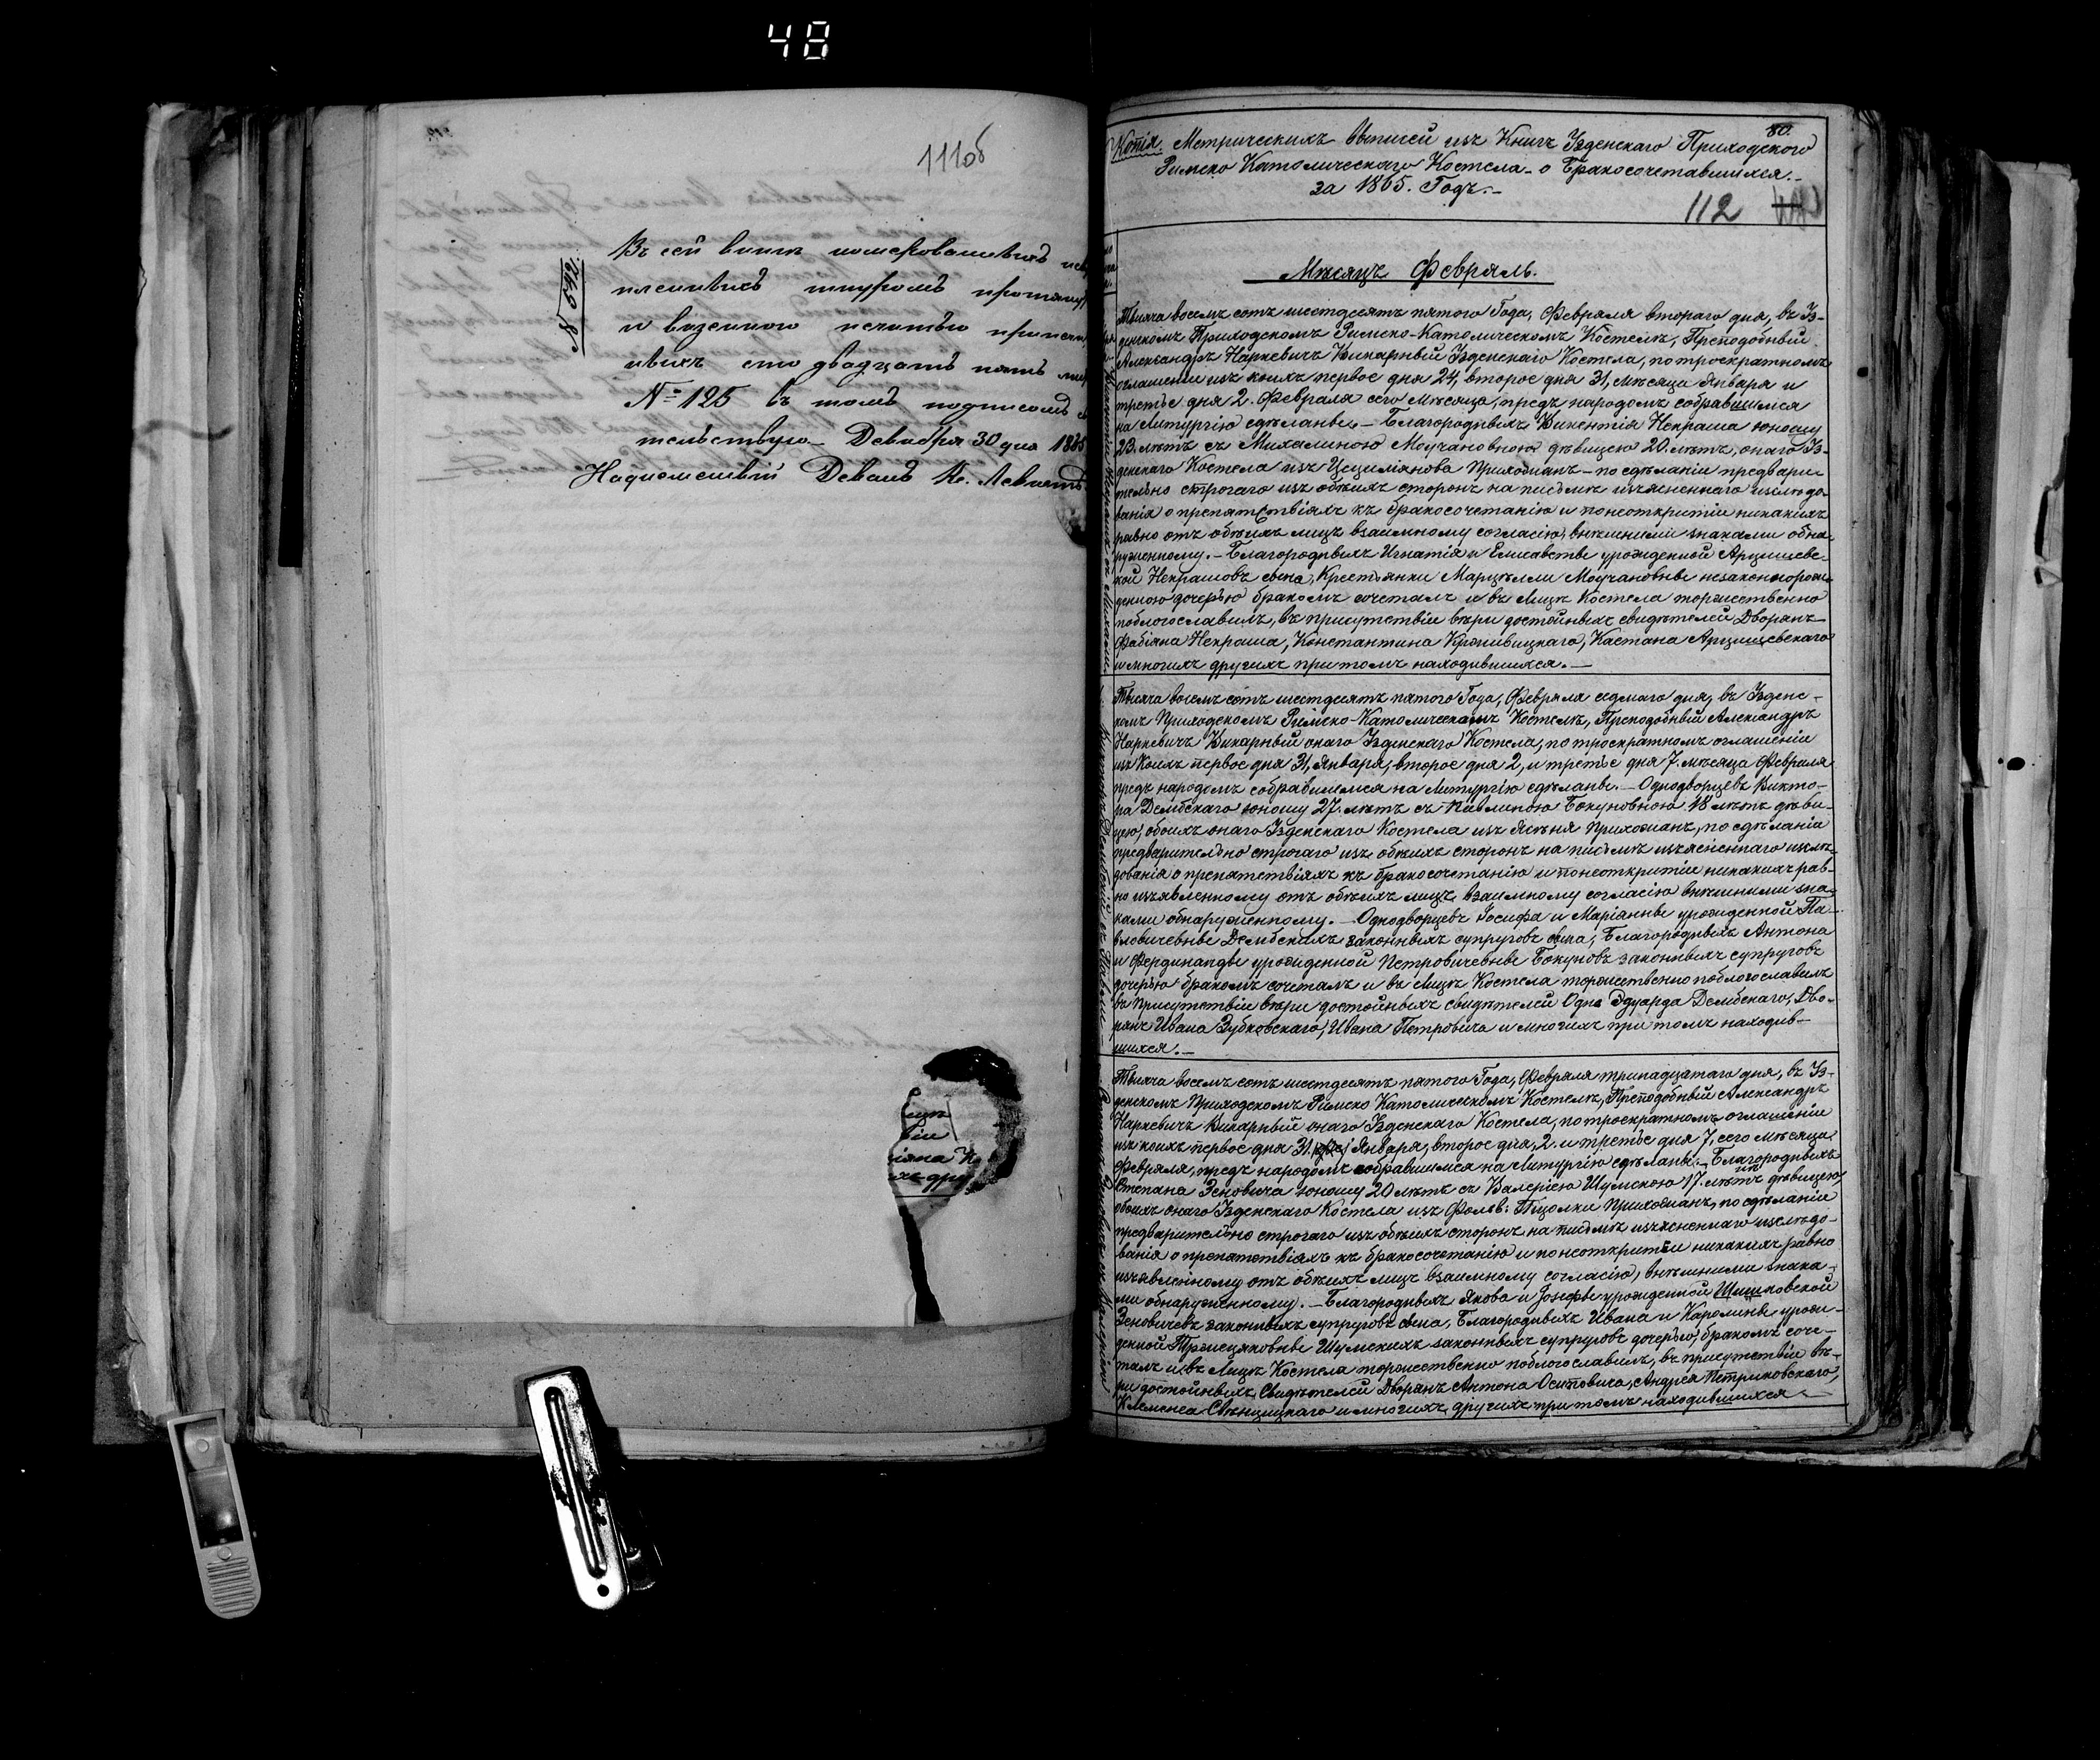 48
111 об
№ 942
Въ сей книге номерованныхъ
пленныхъ шнуромъ протяну
и казенною печатью припеча
ныхъ сто двадцать пять
№ 125 въ томъ подписомъ
тельствую Декабря 30 дня 1865
Наднеменскій Деканъ Кс.
80.
Копія. Метрическихъ выписей изъ Книгъ Узденскаго Приходского
Римско Католическаго Костела о Бракосочетавшихся.
за 1865. Годъ.
112
Мѣсяцъ Февраль.
Тысяча восемь сотъ шестдесятъ пятого Года, Февраля второго дня, въ Уз-
денскомъ Приходскомъ Римско-Католическомъ Костелѣ, Преподобный
Александръ Наркевичъ Викарный Узденскаго Костела, по троекратномъ
оглашеніи изъ коихъ первое дня 24, второе дня 31, Мѣсяца Января и
третье дня 2. Февраля сего Мѣсяца, предъ народомъ собравшимся
на Литургію сдѣланы. – Благородныхъ Викентія Некраша юношу
23. лѣтъ съ Михалиною Моучановною дѣвицею 20. лѣтъ, онаго Уз-
денскаго Костела изъ Прихожанъ – по сдѣланіи предвари
тельно строгаго изъ обѣихъ сторонъ на письмѣ изъясненнаго изслѣдо-
ванія о препятствіяхъ къ бракосочетанію и понеоткрытіи никакихъ
равно отъ обѣихъ лицъ взаимному согласію, внѣшними знаками обна-
руженному. – Благородныхъ Игнатія и Елисаветы урожденной Арцишевс-
кой Некрашовъ сына, Крестьянки Марцѣлли Моучановны незаконнорож-
денною дочерью бракомъ сочеталъ и въ Лицѣ Костела торжественно
поблогославилъ, въ присутствіи вѣры достойныхъ свидѣтелей Дворянъ
Фабіяна Некраша, Константина Кропивницкаго, Каетана Арцишевскаго
и многихъ другихъ при томъ находившихся. –
Тысяча восемь сотъ шестдесятъ пятого Года, Февраля седмаго дня, въ Узденс-
комъ Приходскомъ Римско-Католическомъ Костелѣ, Преподобный Александръ
Наркевичъ Викарный онаго Узденскаго Костела, по троекратномъ оглашеніи
изъ Коихъ первое дня 31, Января, второе дня 2, и третье дня 7. мѣсяца Февраля
предъ народомъ собравшемся на Литургію сдѣланы. – Однодворцевъ Викто-
ра Дембскаго юношу 27. лѣтъ съ Павлиною Бокуновною 18 лѣтъ дѣви-
цею, обоихъ онаго Узденскаго Костела изъ Прихожанъ, по сдѣланіи
предварительно строгаго изъ обѣихъ сторонъ на письмѣ изъясненнаго изслѣ-
дованія о препятствіяхъ къ бракосочетанію и понеоткрытіи никакихъ рав-
но изъявленному отъ обѣихъ лицъ взаимному согласію внѣшними зна-
ками обнаруженному. – Однодворцевъ Іосифа и Маріанны урожденной Па-
вловичевны Дембскихъ законныхъ супруговъ сына, Благородныхъ Антона
и Фердинанды урожденной Петровичевны Бокуновъ законныхъ супруговъ
дочерью бракомъ сочеталъ и въ Лицѣ Костела торжественно поблогославилъ
въ присутствіи вѣры достойныхъ свидѣтелей Одно Эдуарда Дембскаго, Дво-
рянъ Ивана Зубковскаго, Ивана Петровича и многихъ при томъ находив-
шихся. –
Тысяча восемь сотъ шестдесятъ пятого Года, Февраля тринадцатаго дня, въ Уз-
денскомъ Приходскомъ Римско Католическомъ Костелѣ, Преподобный Александръ
Наркевичъ Викарный онаго Узденскаго Костела, по троекратномъ оглашеніи
изъ коихъ первое дня 31. Января, второе дня, 2. и третье дня 7, сего Мѣсяца
Февраля, предъ народомъ собравшимся на Литургію сдѣланы. – Благородныхъ
Степана Зеновича юношу 20 лѣтъ съ Валеріею Шумскою 17. лѣтъ дѣвицею,
обоихъ онаго Узденскаго Костела изъ Фольв: Прихожанъ, по сдѣланіи
предварительно строгаго изъ обѣихъ сторонъ на письмѣ изъясненнаго изслѣдо-
ванія о препятствіяхъ къ бракосочетанію и по неоткрытіи никакихъ равно
изъявленному отъ обѣихъ лицъ взаимному согласію, внѣшними знака-
ми обнаруженному. – Благородныхъ Якова и Іозефы урожденной Шишковской
Зеновичевъ законныхъ супруговъ сына, Благородныхъ Ивана и Каролины урож-
денной Шумскихъ законныхъ супруговъ дочерью, бракомъ соче-
талъ и въ Лицѣ Костела торжественно поблогославилъ, въ присутствіи вѣ-
ры достойныхъ Свидѣтелей Дворянъ Антона Осиповича, Андрея Петриковскаго,
Клеменса Свѣнцицкаго и многихъ другихъ при томъ находившихся